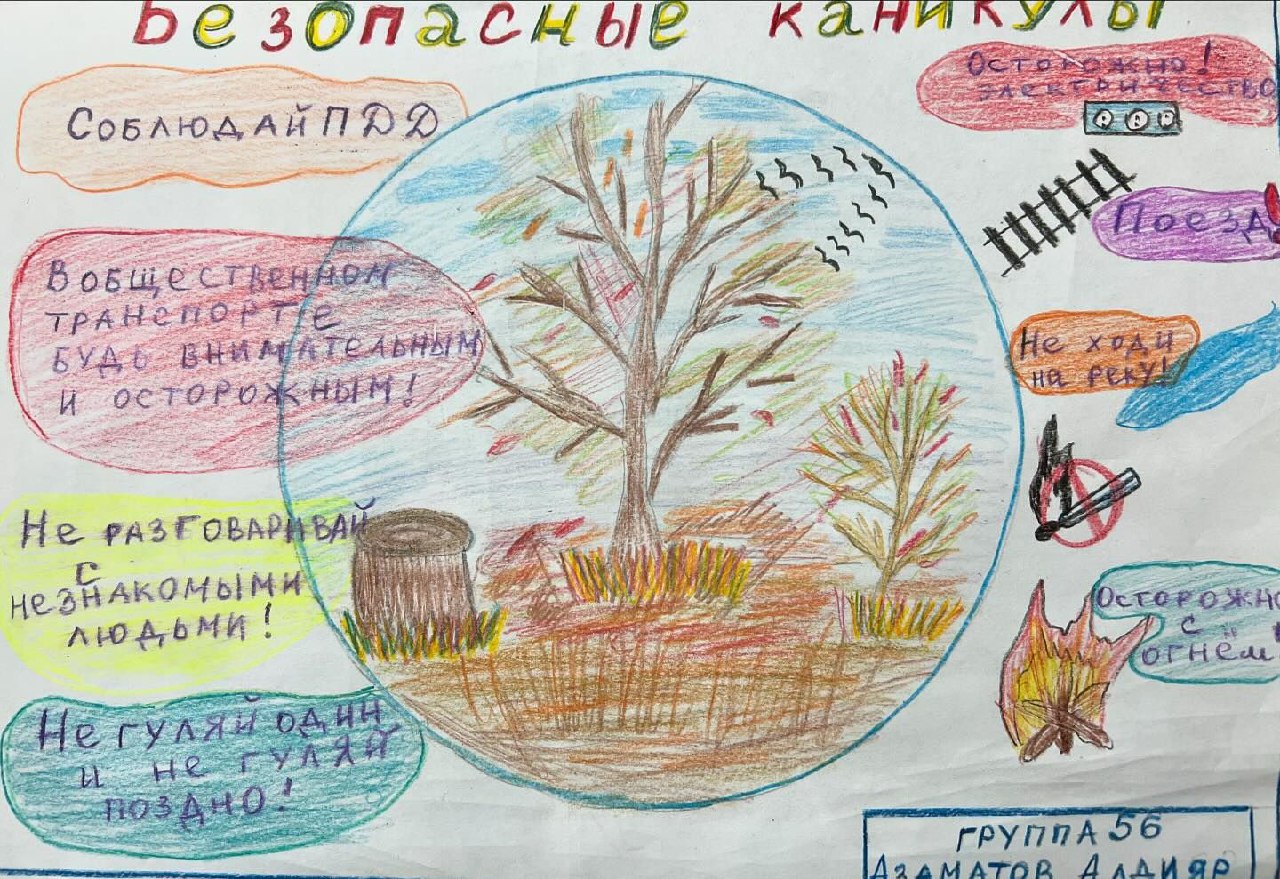 Безопасные каникулы
Соблюдай ПДД
В общественном
транспорте
будь внимательным
и осторожным!
Не разговаривай
с
незнакомыми
людьми!
Не гуляй один
и не гуляй
поздно!
Осторожно!
электричество
Поезд!
Не ходи
на реку!
Осторожно
с
огнём
группа 56
Азаматов Алдияр